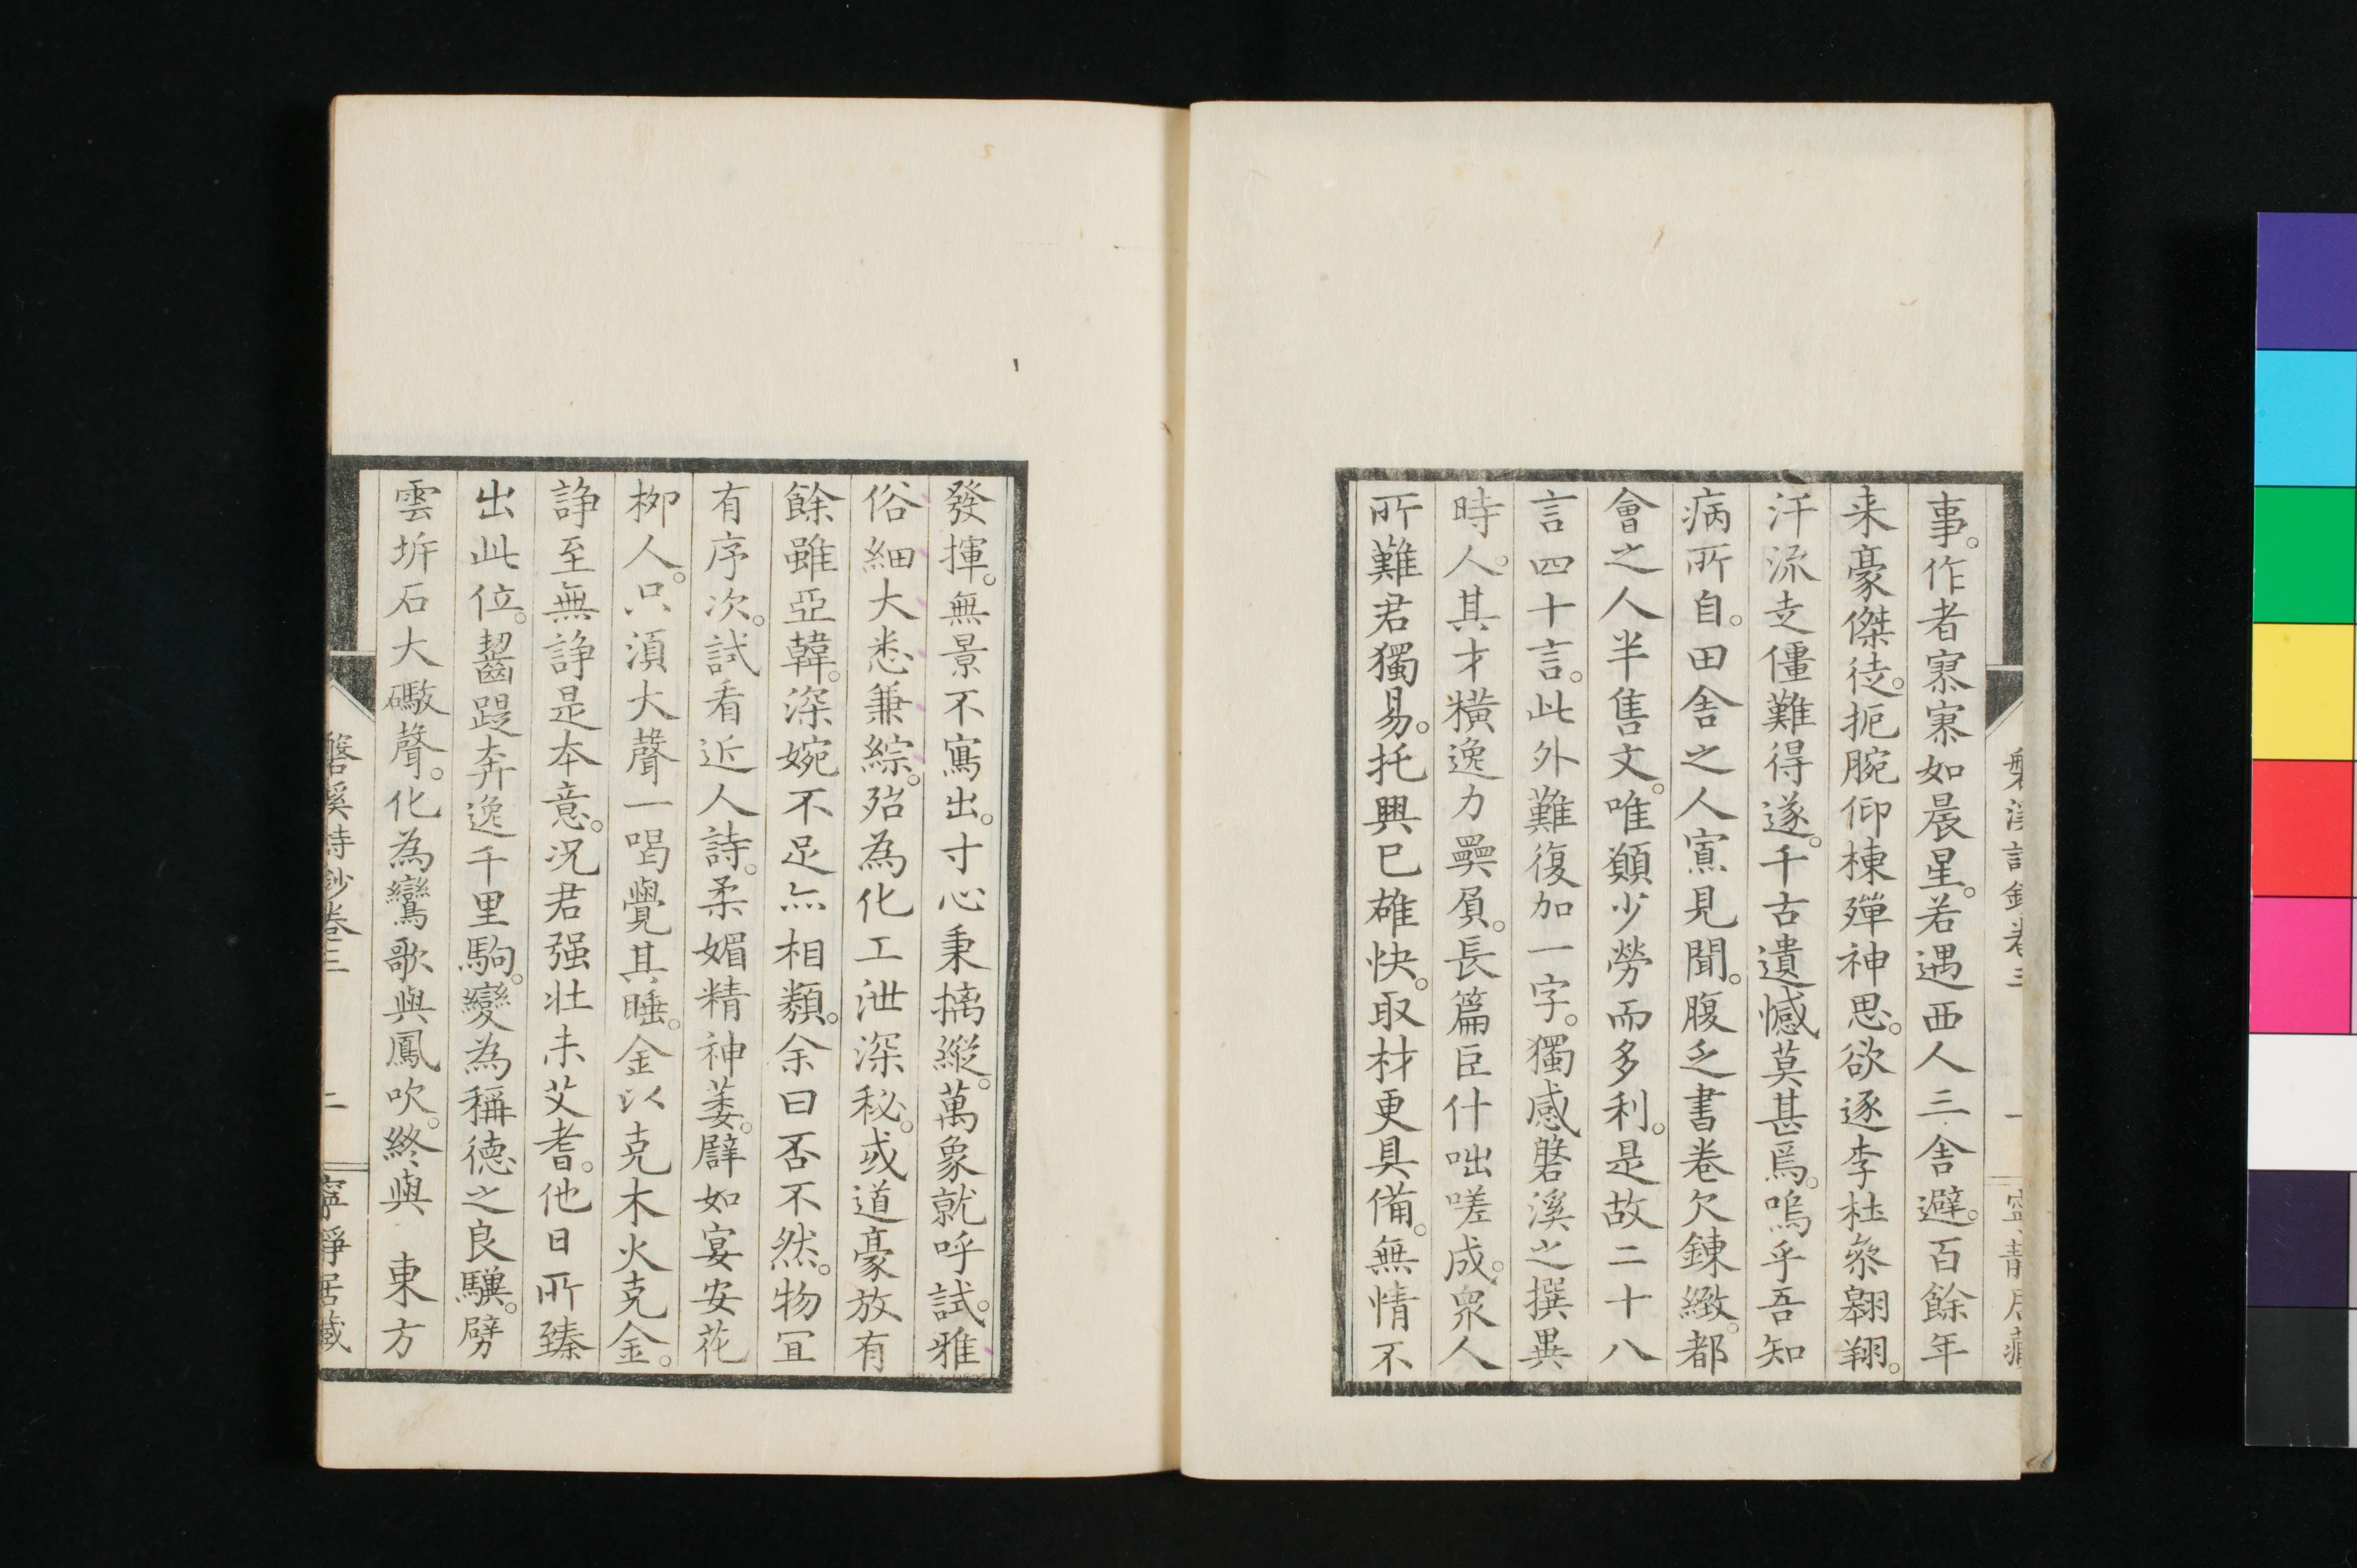 事。作者寥寥如晨星。若遇西人三舍避。百餘年
来豪傑徒。扼腕仰棟殫神思。欲逐李杜叅翱翔。
汗流走僵難得遂。千古遺憾莫甚焉。嗚乎吾知
病所自。田舍之人寡見聞。腹乏書卷欠錬緻。都
會之人半售文。唯顛少勞而多利。是故二十八
言四十言。此外難復加一字。獨感磐溪之撰異
時人。其才橫逸力奰屓。長篇巨什咄嗟成。衆人
所難君獨易。托興已雄快。取材更具備。無情不
發揮。無景不寫出。寸心秉摛縱。萬象就呼試。雅
俗細大悉兼綜。殆為化工泄深秘。或道豪放有
餘雖亞韓。深婉不足亦相類。余曰否不然。物宜
有序次。試看近人詩。柔媚精神萎。譬如宴安花
柳人。只須大聲一喝覺其睡。金以克木火克金。
諍至無諍是本意。況君强壮未艾耆。他日所臻
出此位。齧踶奔逸千里駒。變為稱德之良驥。劈
雲㘽石大礮聲。化為鸞歌與鳳吹。終與　東方
磐溪詩鈔卷三　二　寧靜居藏